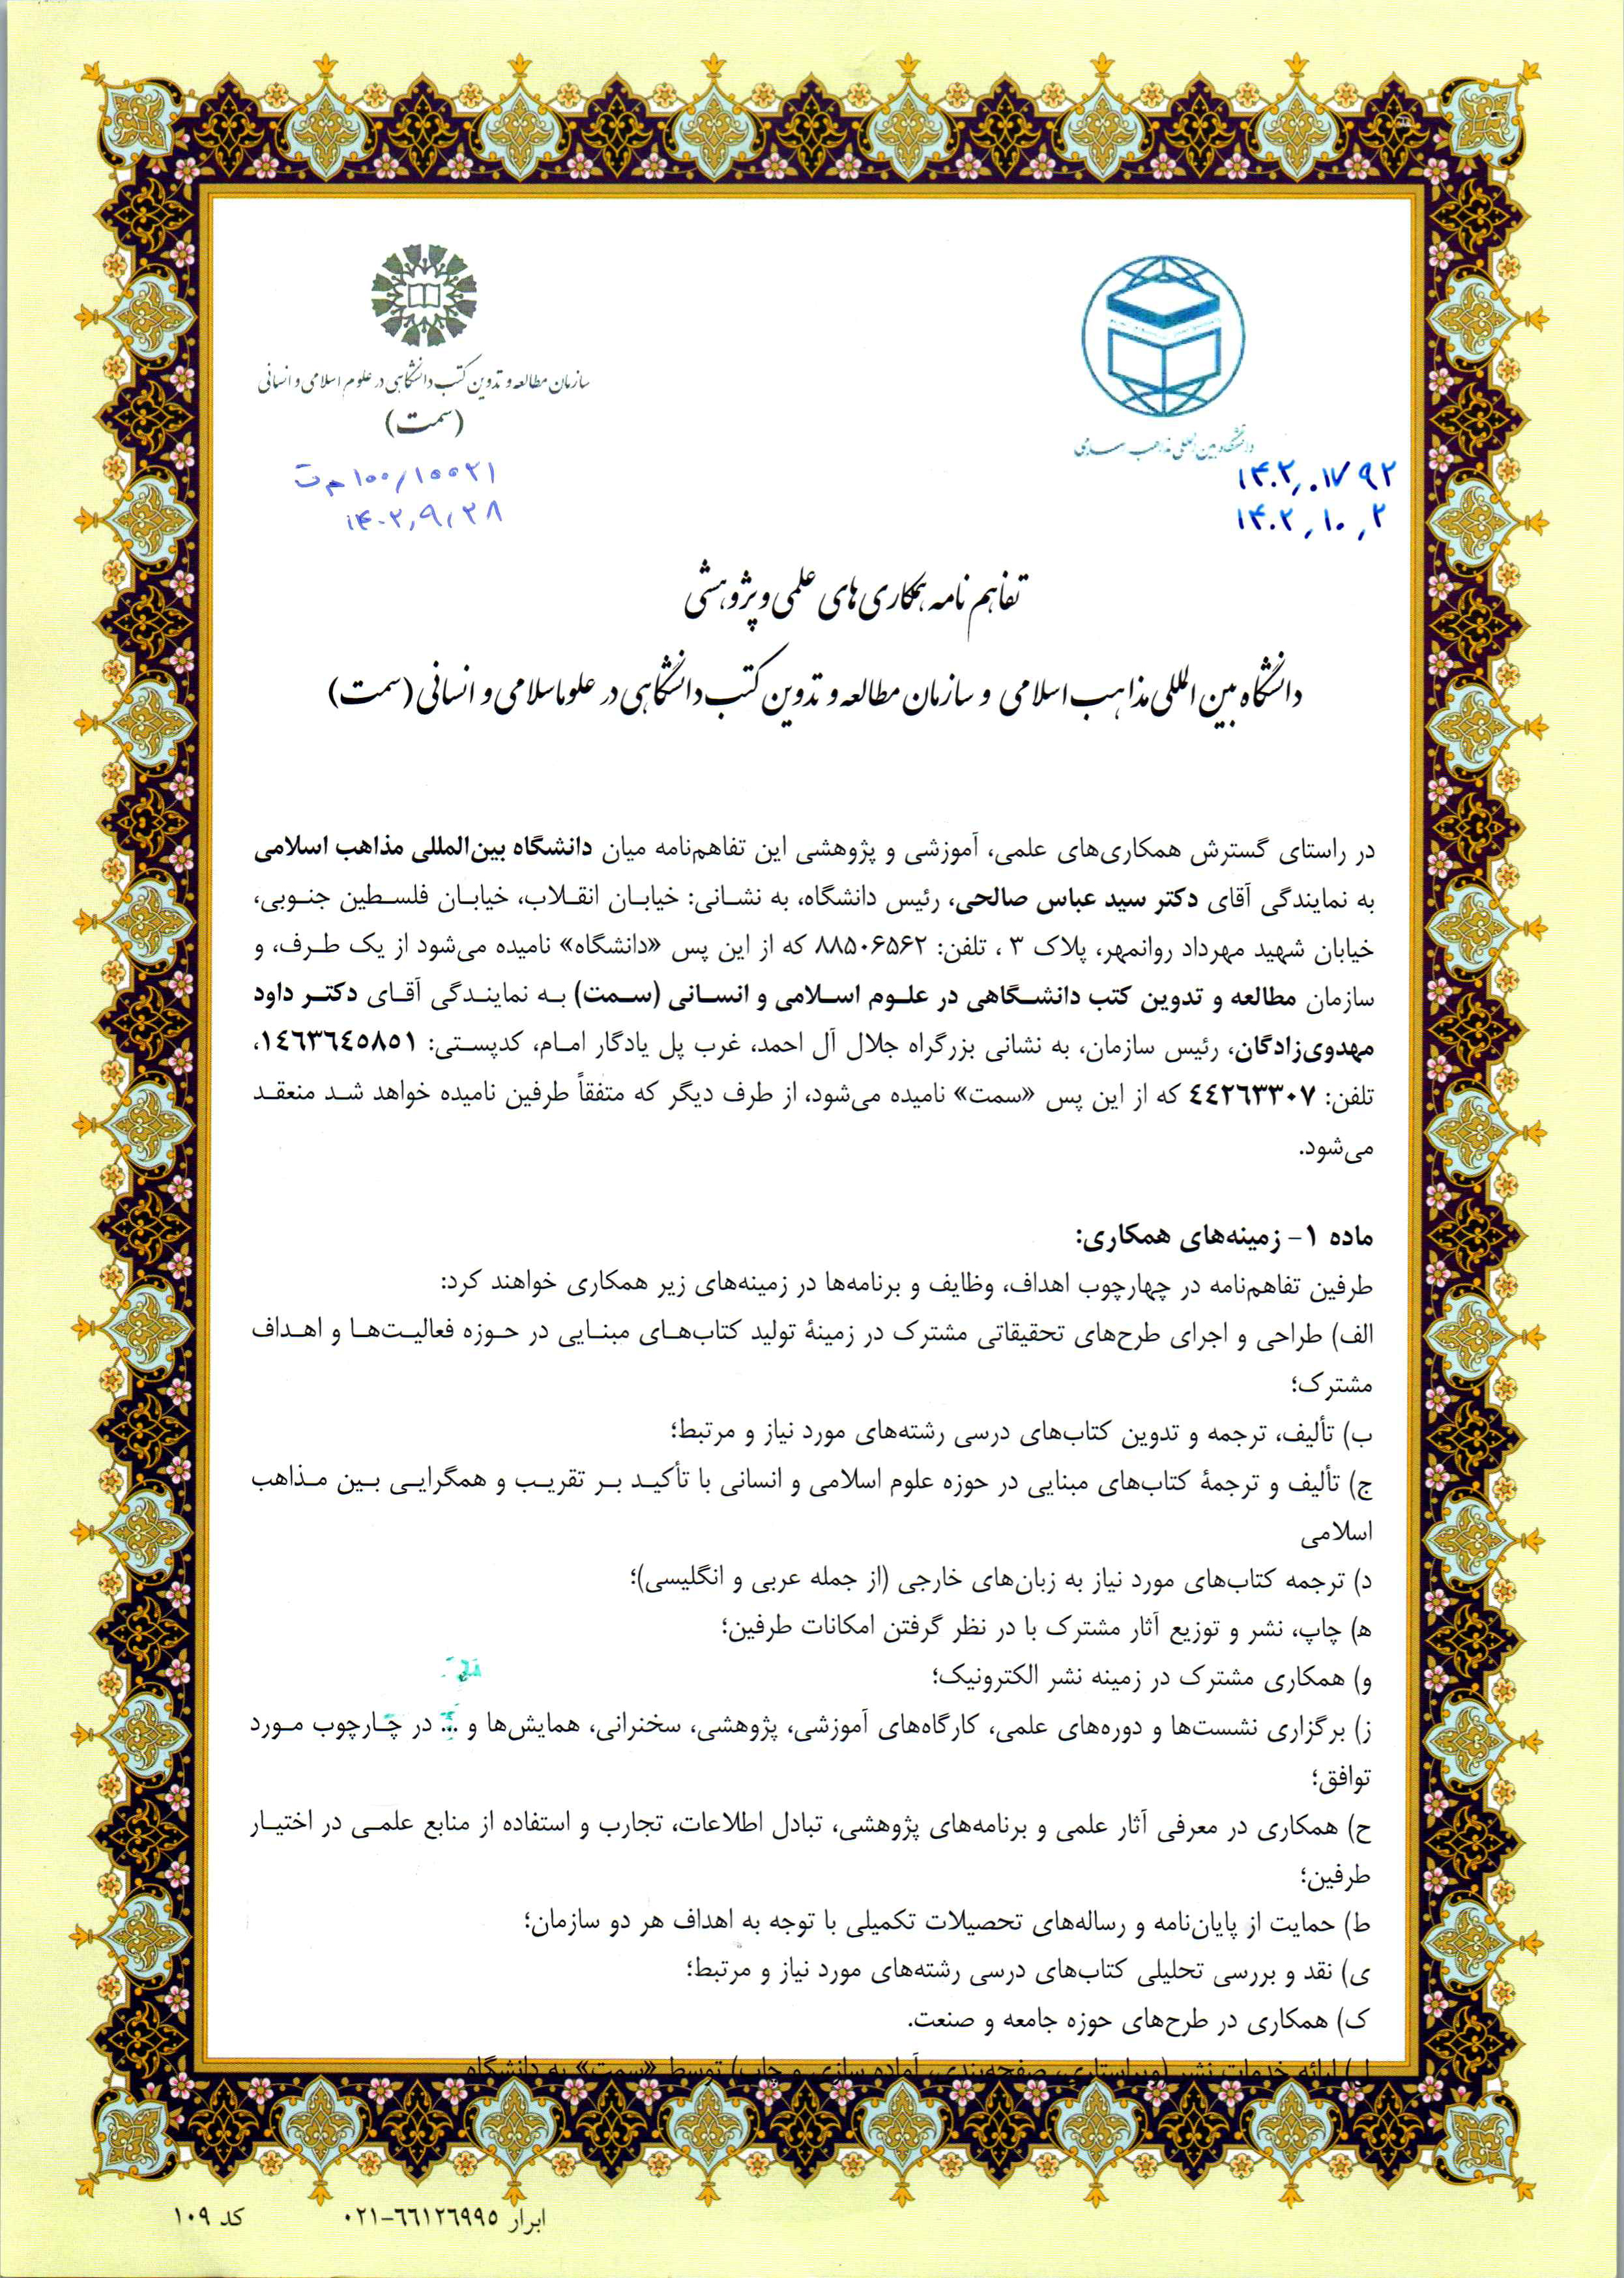 سازمان مطالعه و تدوین کتب دانشگاهی در علوم اسلامی و انسانی
(سمت)
۱۰۰/۱۵۵۲۱
۱۴۰۲,۹,۲۸
دانشگاه بین المللی مذاهب اسلامی
۱۴۰۲,۰۱۷۹۲
۱۴۰۲,۱۰,۲
تفاهم نامه همکاری های علمی و پژوهشی
دانشگاه بین المللی مذاهب اسلامی و سازمان مطالعه و تدوین کتب دانشگاهی در علوم اسلامی و انسانی (سمت)
در راستای گسترش همکاری‌های علمی، آموزشی و پژوهشی این تفاهم‌نامه میان دانشگاه بین‌المللی مذاهب اسلامی
به نمایندگی آقای دکتر سید عباس صالحی، رئیس دانشگاه، به نشانی: خیابان انقلاب، خیابان فلسطین جنوبی،
خیابان شهید مهرداد روانمهر، پلاک ۳ ، تلفن: ۸۸۵۰۶۵۶۲ که از این پس «دانشگاه» نامیده می‌شود از یک طرف، و
سازمان مطالعه و تدوین کتب دانشگاهی در علوم اسلامی و انسانی (سمت) به نمایندگی آقای دکتر داود
مهدوی‌زادگان، رئیس سازمان، به نشانی بزرگراه جلال آل احمد، غرب پل یادگار امام، کدپستی: ١٤٦٣٦٤٥٨٥١،
تلفن: ٤٤٢٦٣٣٠٧ که از این پس «سمت» نامیده می‌شود، از طرف دیگر که متفقاً طرفین نامیده خواهد شد منعقد
می‌شود.
ماده ۱- زمینه‌های همکاری:
طرفین تفاهم‌نامه در چهارچوب اهداف، وظایف و برنامه‌ها در زمینه‌های زیر همکاری خواهند کرد:
الف) طراحی و اجرای طرح‌های تحقیقاتی مشترک در زمینهٔ تولید کتاب‌های مبنایی در حوزه فعالیت‌ها و اهداف
مشترک؛
ب) تألیف، ترجمه و تدوین کتاب‌های درسی رشته‌های مورد نیاز و مرتبط؛
ج) تألیف و ترجمهٔ کتاب‌های مبنایی در حوزه علوم اسلامی و انسانی با تأکید بر تقریب و همگرایی بین مذاهب
اسلامی
د) ترجمه کتاب‌های مورد نیاز به زبان‌های خارجی (از جمله عربی و انگلیسی)؛
ه) چاپ، نشر و توزیع آثار مشترک با در نظر گرفتن امکانات طرفین؛
و) همکاری مشترک در زمینه نشر الکترونیک؛
ز) برگزاری نشست‌ها و دوره‌های علمی، کارگاه‌های آموزشی، پژوهشی، سخنرانی، همایش‌ها و ... در چارچوب مورد
توافق؛
ح) همکاری در معرفی آثار علمی و برنامه‌های پژوهشی، تبادل اطلاعات، تجارب و استفاده از منابع علمی در اختیار
طرفین؛
ط) حمایت از پایان‌نامه و رساله‌های تحصیلات تکمیلی با توجه به اهداف هر دو سازمان؛
ی) نقد و بررسی تحلیلی کتاب‌های درسی رشته‌های مورد نیاز و مرتبط؛
ک) همکاری در طرح‌های حوزه جامعه و صنعت.
ل) ارائه خدمات نشر (ویراستاری، صفحه‌بندی، آماده سازی و چاپ) توسط «سمت» به دانشگاه
ابرار ٦٦١٢٦٩٩٥-٠٢١
کد ۱۰۹